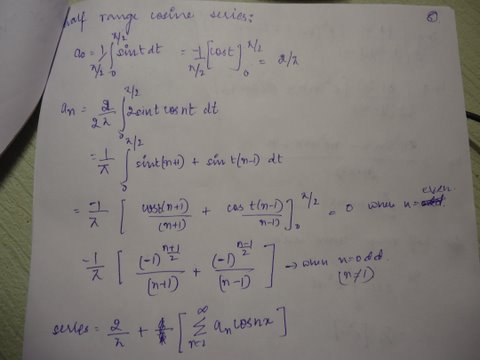 half range cosine series: 5
a₀ = 1/(π/2) ∫₀^{π/2} sint dt = -1/(π/2) [cost]₀^{π/2} = 2/π
aₙ = 2/2π ∫₀^{π/2} 2sint cosnt dt
= 1/π ∫₀^{π/2} sint(n+1) + sin t(n-1) dt
= -1/π [ cost(n+1)/(n+1) + cos t(n-1)/(n-1) ]₀^{π/2} = 0 when n = even
-1/π [ (-1)^{(n+1)/2}/(n+1) + (-1)^{(n-1)/2}/(n-1) ] → when n=odd
(n≠1)
series = 2/π + [ ∑_{n=2}^{∞} aₙ cosnx ]